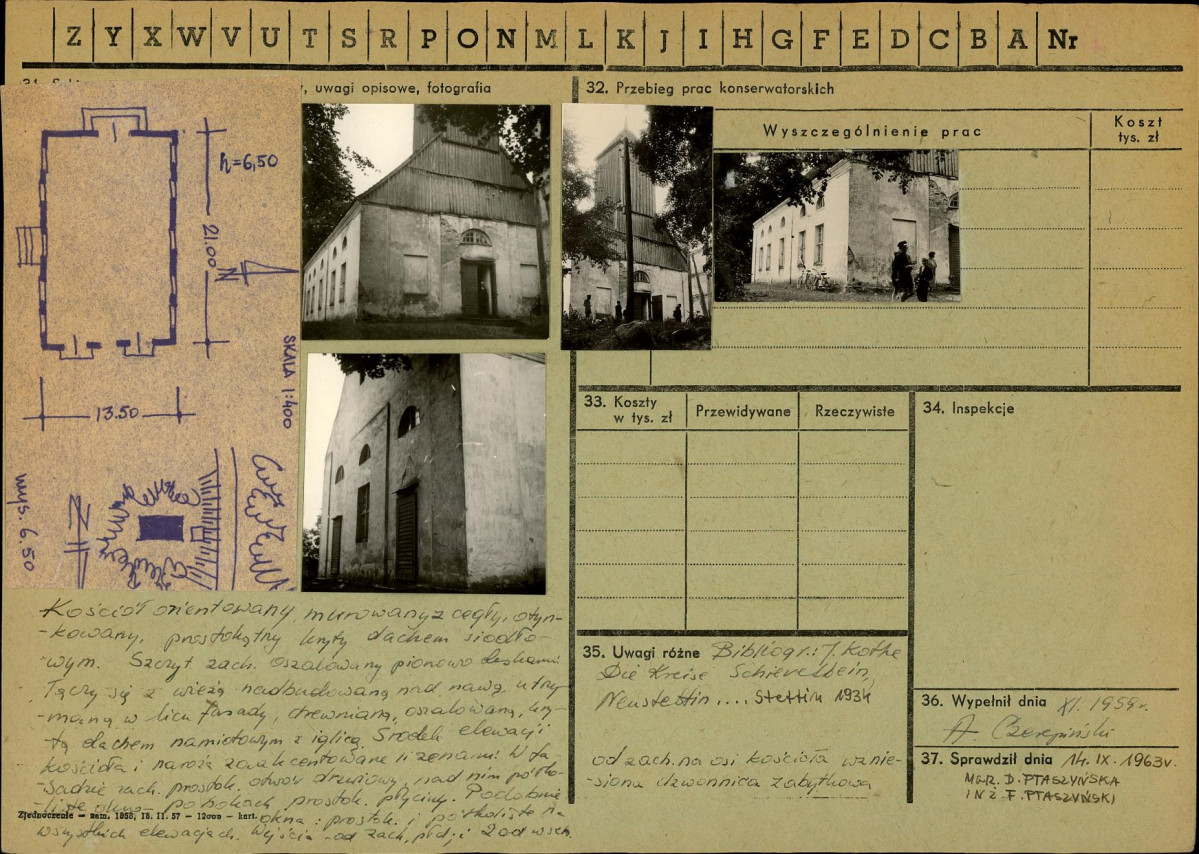 Z Y X W V U T S R P O N M L K J I H G F E D C B A Nr
, uwagi opisowe, fotografia
h=6,50
21.00
N
13.50
SKALA 1:400
wys. 6.50
N
Kościół orientowany, murowany z cegły, otyn-
-kowany, prostokątny kryty dachem siodło-
-wym. Szczyt zach. oszalowany pionowo deskami
Łączy się z wieżą nadbudowaną nad nawą, utrzy-
-maną w licu fasady, drewnianą, oszalowaną, kry-
tą dachem namiotowym z iglicą. Środek elewacji
kościoła i naroża zaakcentowane lizenami. W fa-
sadzie zach. prostok. otwór drzwiowy, nad nim półko-
-liste okno - po bokach prostok. płyciny. Podobnie
okna: prostok. i półkoliste na
Zjednoczenie — zam. 1958, 18. II. 57 — 12000 — kart.
wszystkich elewacjach. Wejścia - od zach, płd, i 2 od wsch.
32. Przebieg prac konserwatorskich
Wyszczególnienie prac
Koszt
tys. zł
33. Koszty
w tys. zł
Przewidywane
Rzeczywiste
34. Inspekcje
35. Uwagi różne Bibliogr.: J. Kothe
Die Kreise Schievelbein,
Neustettin, ... Stettin 1934
od zach. na osi kościoła wznie-
-siona dzwonnica zabytkowa
36. Wypełnił dnia XI. 1959 r.
A. Czerepiński
37. Sprawdził dnia 14. IX. 1963 r.
MGR. D. PTASZYŃSKA
INŻ. F. PTASZYŃSKI